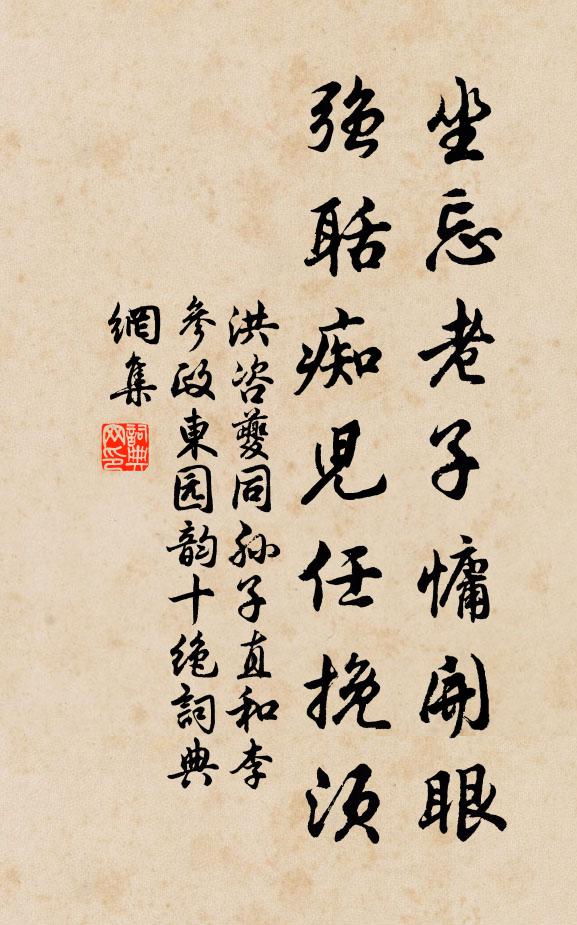 坐忘老子慵開眼
強聒痴児任挽須
洪咨夔同孙子直和李
參政東园韵十绝詞典
網集
詞典
网印